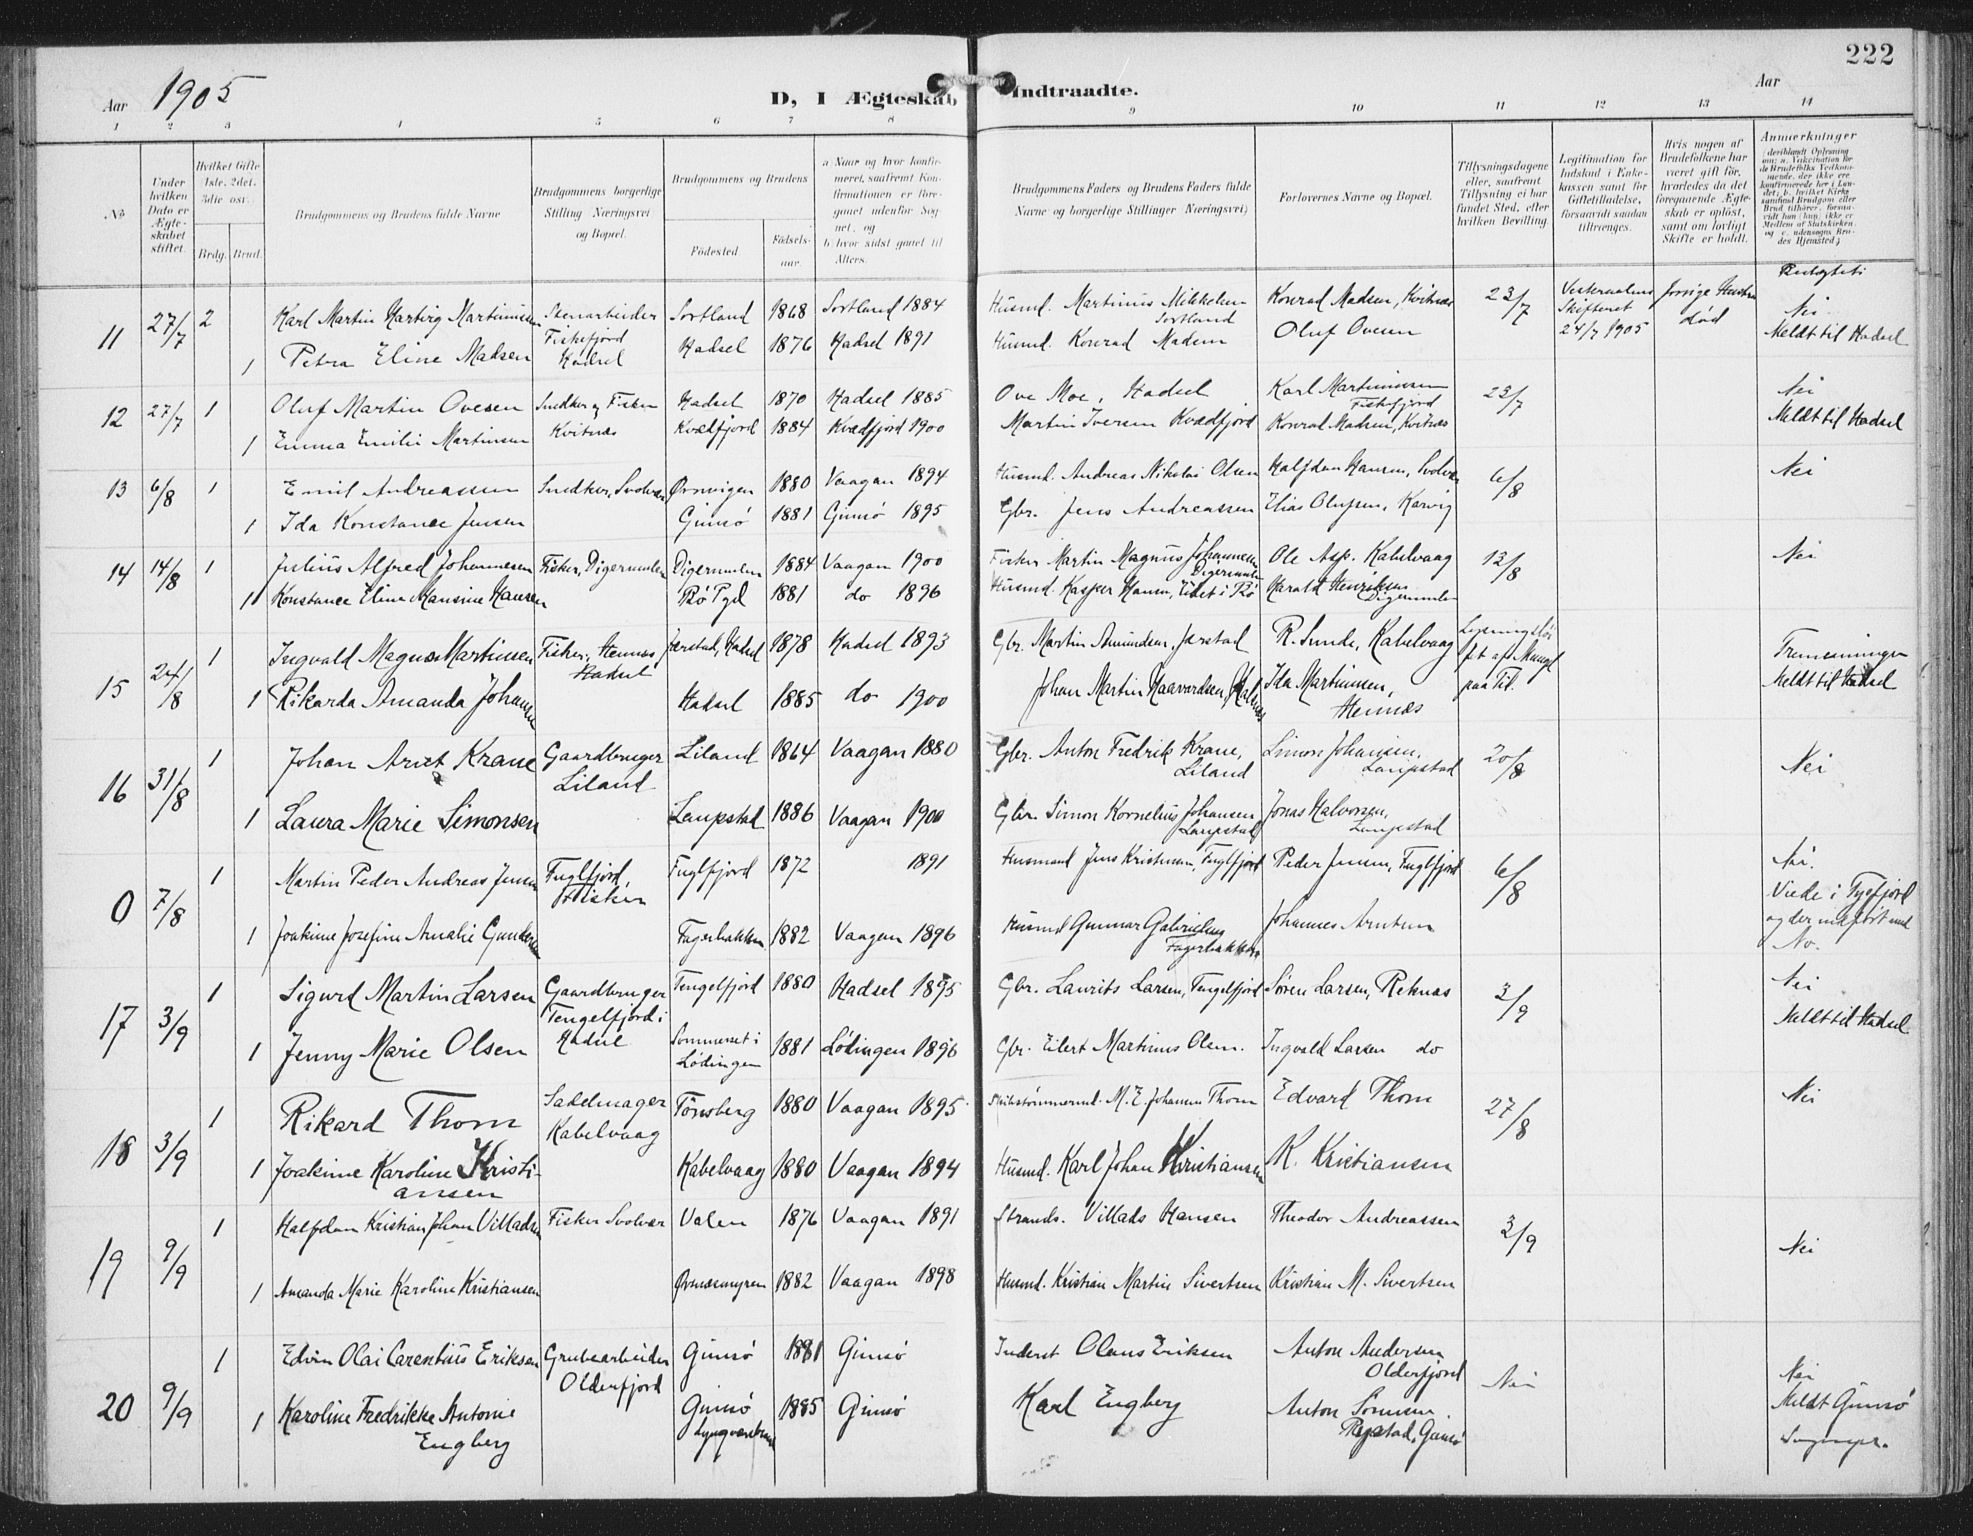 222
Aar 1905
D, I Ægteskab Indtraadte.
Aar
1 2 3 4 5 6 7 8 9 10 11 12 13 14
No
Under hvilken Dato er Ægteskabet stiftet.
Hvilket Gifte 1ste, 2det, 3die osv.
Brdg. Brud.
Brudgommens og Brudens fulde Navne
Brudgommens borgerlige Stilling Næringsvei og Bopæl.
Brudgommens og Brudens
Fødested
Fødselsaar.
a. Naar og hvor konfirmeret, saafremt Konfirmationen er foregaaet udenfor Sognet, og
b. hvor sidst gaaet til Alters.
Brudgommens Faders og Brudens Faders fulde Navne og borgerlige Stillinger Næringsvei)
Forlovernes Navne og Bopæl.
Tillysningsdagene eller, saafremt Tillysning ei har fundet Sted, efter hvilken Bevilling.
Legitimation for Indskud i Enkekassen samt for Giftetilladelse, forsaavidt saadan tiltrænges.
Hvis nogen af Brudefolkene har været gift før, hvorledes da det foregaaende Ægteskab er opløst, samt om lovligt Skifte er holdt.
Anmærkninger
11 27/7 2 Karl Martin Hartvig Martinussen Stenarbeider Sortland 1868 Sortland 1884 Husmd. Martinus Mikkelsen Sortland Konrad Madsen, Kvitnæs 23/7 Vesteraalens Skifteret 24/7 1905 forrige Hustru død Nei
1 Petra Eline Madsen Fiskefjord Hadsel Hadsel 1876 Hadsel 1891 Husmd. Konrad Madsen Oluf Ovesen Meldt til Hadsel
12 27/7 1 Oluf Martin Ovesen Snedker og Fisker Hadsel 1870 Hadsel 1885 Ove Moe, Hadsel Karl Martinussen Fiskefjord 23/7 Nei
1 Emma Emilie Martinsen Kvitnæs Kvædfjord 1884 Kvædfjord 1900 Martin Iversen Kvædfjord Konrad Madsen, Kvitnæs Meldt til Hadsel
13 6/8 1 Emil Andreassen Snedker, Svolvær Ørnvigen 1880 Vaagan 1894 Husmd. Andreas Nikolai Olsen Halfdan Hansen, Svolvær 6/8 Nei
1 Ida Konstance Jensen Gimsø 1881 Gimsø 1895 Gbr. Jens Andreassen Elias Olufsen, Kavig
14 14/8 1 Julius Alfred Johannesen Fisker, Digermulen Digermulen 1884 Vaagan 1900 Fisker Martin Magnus Johannesen Digermulen Ole Asp. Kabelvaag 13/8 Nei
1 Konstance Eline Hansine Hansen Bø Pgd 1881 do 1896 Husmd. Kasper Hansen, Eidet i Bø Harald Henriksen Digermulen
15 24/8 1 Ingvald Magnus Martinssen Fisker, Hennæs Hadsel Jærstad, Hadsel 1878 Hadsel 1893 Gbr. Martin Amundsen, Jærstad R. Sunde, Kabelvaag Tremenninger
1 Rikarda Amanda Johansen Hadsel 1885 do 1900 Johan Martin Haavardsen, Ida Martinssen, Hennæs paa Til. Meldt til Hadsel
16 31/8 1 Johan Arnt Krane Gaardbruger Liland Liland 1864 Vaagan 1880 Gbr. Anton Fredrik Krane, Liland Simon Johansen, Laupstad 20/8 Nei
1 Laura Marie Simonsen Laupstad 1886 Vaagan 1900 Gbr. Simon Kornelius Johansen Laupstad Jonas Halvorsen, Laupstad
0 7/8 1 Martin Peder Andreas Jensen Fuglfjord Fisker Fuglfjord 1872 1891 Husmand Jens Kristensen, Fuglfjord Peder Jensen, Fuglfjord 6/8 Nei.
1 Joakime Josefine Amalie Gundersen Fagerbakken 1882 Vaagan 1896 Husmd Gunnar Gabrielsen Fagerbakken Johannes Arntsen Viede i Tysfjord og der indført med No.
17 3/9 1 Sigurd Martin Larsen Gaardbruger Tengelfjord i Hadsel Tengelfjord 1880 Hadsel 1895 Gbr. Laurits Larsen, Tengelfjord Søren Larsen, Reknæs 3/9 Nei
1 Jenny Marie Olsen Sommerset i Lødingen 1881 Lødingen 1896 Gbr. Eilert Martinus Olsen. Ingvald Larsen do Meldt til Hadsel
18 3/9 1 Rikard Thom Sadelmager Kabelvaag Tønsberg 1880 Vaagan 1895 Skibstømmermd. M. E. Johansen Thom Edvard Thom 27/8 Nei
1 Joakime Karoline Kristiansen Kabelvaag 1880 Vaagan 1894 Husmd. Karl Johan Kristiansen K. Kristiansen
19 9/9 1 Halfdan Kristian Johan Villadsen Fisker Svolvær Valen 1876 Vaagan 1891 Strands. Villads Hansen Theodor Andreassen 3/9 Nei
1 Amanda Marie Karoline Kristiansen Ørnæsmyren 1882 Vaagan 1898 Husmd. Kristian Martin Sivertsen Kristian M. Sivertsen
20 9/9 1 Edvin Olai Carentius Eriksen Grubearbeider Olderfjord Gimsø 1881 Gimsø Inderst Olaus Eriksen Anton Andersen Olderfjord Nei Nei
1 Karoline Fredrikke Antonie Engberg Gimsø 1885 Gimsø Karl Engberg Anton Sørensen Gimsø Meldt Gimsø